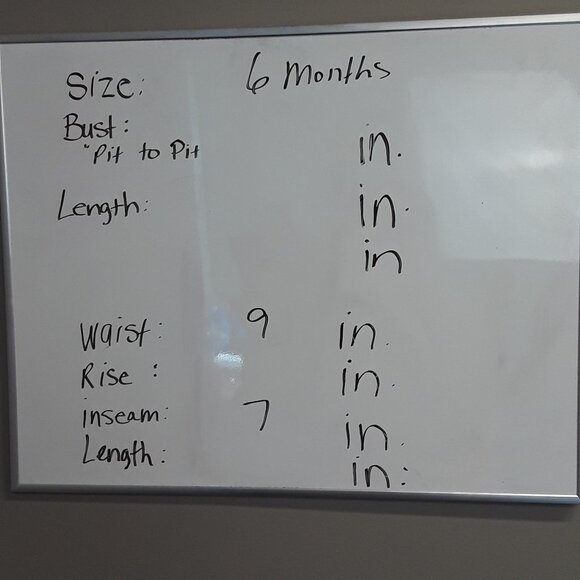 Size: 6 Months
Bust:
"Pit to Pit in.
Length: in.
in
Waist: 9 in.
Rise: in.
inseam: 7 in.
Length: in: